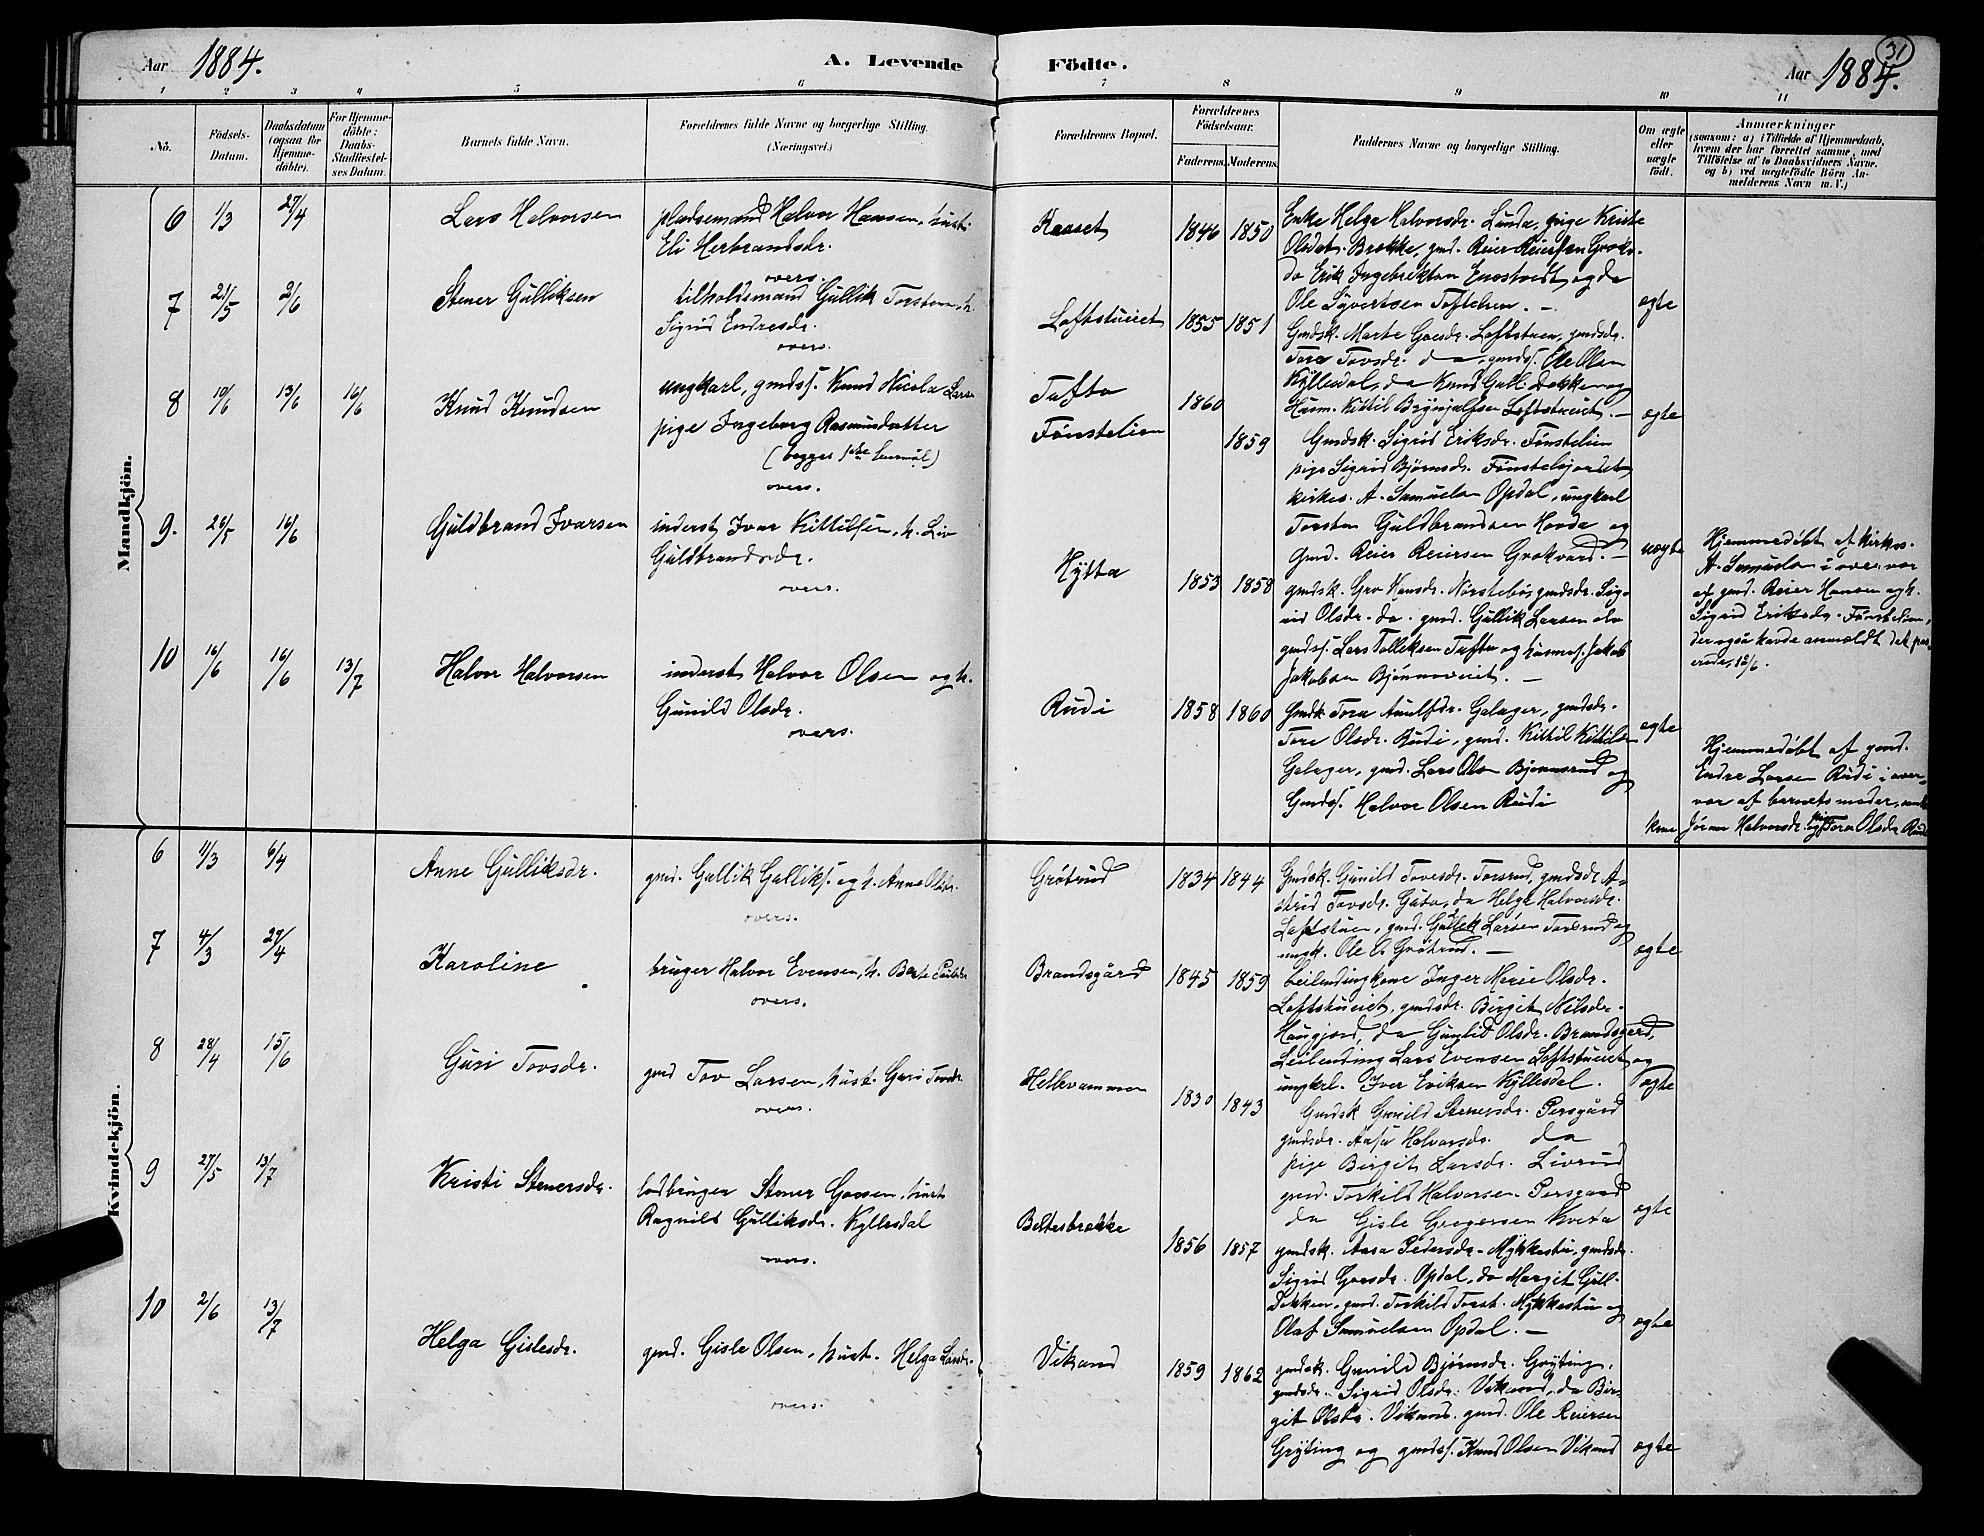 Aar 1884.
A. Levende Födte.
Aar 1884.
31
1 2 3 4 5 6 7 8 9 10 11
No.
Födsels-Datum.
Daabsdatum (ogsaa for Hjemme-döbte).
For Hjemme-döbte: Daabs-Stadfæstelses Datum.
Barnets fulde Navn.
Forældrenes fulde Navne og borgerlige Stilling.
(Næringsvei.)
Forældrenes Bopæl.
Forældrenes Födselsaar.
Faderens. Moderens.
Faddernes Navne og borgerlige Stilling.
Om ægte eller uægte födt.
Anmærkninger
(saasom: a) i Tilfælde af Hjemmedaab,
hvem der har forrettet samme, med
Tilföielse af to Daabsvidners Navne,
og b) ved uægtefödte Börn An-
melderens Navn m. V.)
Mandkjön.
6 1/3 27/4 Lars Halvorsen
pladsemand Halvor Hansen, hustr.
Eli Herbrandsdr.
overs.
Raaset 1846 1850
Enke Helge Halvorsdr. Lunda, pige Kristi
Olsdat. Brække, gmd. Reier Reiersen Grokv.
do Erik Ingebriktsn Enostvedt og do
Ole Syvertsen Toftelien. —
ægte
7 21/5 2/6 Stener Gulliksen
tilholdsmand Gullik Torstens, h.
Sigrid Endresdr.
overs.
Loftstueiet 1855 1851
Gmdsk. Marte Goesdr. Loftstuen, gmdsdr.
Tore Tovsdr. do, gmds. Ole Olsen
Kyllesdal, do Knud Gull. Dokken og
Husm. Kittil Brynjulfsen Loftstueiet. —
ægte
8 10/6 13/6 16/6 Knud Knudsen
ungkarl, gmdss. Knud Nicolai Larsn
pige Ingeborg Rasmusdatter
(begges 1ste leiermål)
overs.
Tufto 1860
Fønstelien 1859
Gmdsk. Sigrid Eriksdr. Fønstelien
pige Sigrid Bjørnsdr. Fønsteljordet,
kirkes. A. Samuelsn Opdal, ungkarl
Torsten Guldbrandsen Hovda og
Gmd. Reier Reiersen Grokvard. —
uægte
Hjemmedøbt af kirkes.
A. Samuelsn i overvær
af gmd. Reier Hansen og h.
Sigrid Eriksdr. Fønstelien,
der også havde anmeldt det pas-
serede, 12/6.
9. 26/5 16/6 Guldbrand Ivarsen
inderst Ivar Kittilsen, h. Liv
Guldbrandsdr.
overs.
Hytta 1853 1858
gmdsk. Gro Hansdr. Nørstebø, gmdsdr. Sig-
rid Olsdr. do. gmd. Gullik Larsen do
gmdss. Lars Tolleksen Tufto og husms. Jakob
Jakobsen Bjønnerueiet. —
10 16/6 16/6 13/7 Halvor Halvorsen
inderst Halvor Olsen og h.
Gunild Olsdr.
overs.
Rudi 1858 1860
Gmdk. Tora Aunlfsdr. Gelager, gmdsdr.
Tore Olsdr. Rudi, gmd. Kittil Kittilsen
Gelager, gmd. Lars Olsn Bjønnerud og
Gmdss. Halvor Olsen Rudi
ægte
Hjemmedøbt af gmd.
Endre Larsen Rudi i over-
vær af barnets moder,
kone Jøran Halvorsdr. og pige Tora Olsdr. Rudi
Kvindekjön.
6 11/3 6/4 Anne Gulliksdr.
gmd. Gullik Galliks. og h. Anne Olsdr.
overs.
Grøtrud 1834 1844
Gmdsk. Gunild Tovesdr. Torsrud, gmdsdr. A-
strid Tovsdr. Guto, do Helge Halvorsdr.
Loftstuen, gmd. Gullek Larsen Torsrud og
ungk. Ole O. Grøtrud. —
ægte
7 4/3 27/4 Karoline
bruger Halvor Evensen, h. Berte Paulsdr.
overs.
Brandsgård 1845 1859
Leilendingkone Inger Marie Olsdr.
Loftstueiet, gmdsdr. Birgit Nilsdr.
Haugjord, do Gunild Olsdr. Brandsgard,
Leilending Lars Evensen Loftstueiet og
ungkrl. Iver Eriksen Kyllesdal.
ægte
8 28/4 15/6 Guri Tovsdr.
gmd Tov Larsen, hust. Guri Tovsdr.
overs.
Helkvammen 1830 1843
Gmdsk Gunild Stenersdr. Persgård
gmdsdr. Aase Halvorsdr. do
pige Birgit Larsdr. Livrud
gmd. Torkild Halvorsen Persgaard
do Gisle Gregersen Kveta
ægte
9 27/5 13/7 Kristi Stenersdr.
lodbruger Stener Goesen, hust.
Ragnild Gulliksdr. Kyllesdal
overs.
Beltesbrekke 1856 1857
gmdsk. Aasa Pedersdr. Mykkestu, gmdsdr.
Sigrid Goesdr. Opdal, do Margit Gull-
Dokken, gmd. Torkild Torst. Mykkestu og
Olaf Samuelsen Opdal. —
ægte
10 2/6 13/7 Helga Gislesdr.
gmd. Gisle Olsen, hust. Helga Larsdr.
overs.
Vikand 1859 1862
gmdsk. Gunild Bjørnsdr. Gryting,
gmdsdr. Sigrid Olsdr. Vikand, do Bir-
git Olsdr. Vikand. gmd. Ole Reiersen
Gryting og gmdss. Knud Olsen Vikand
ægte